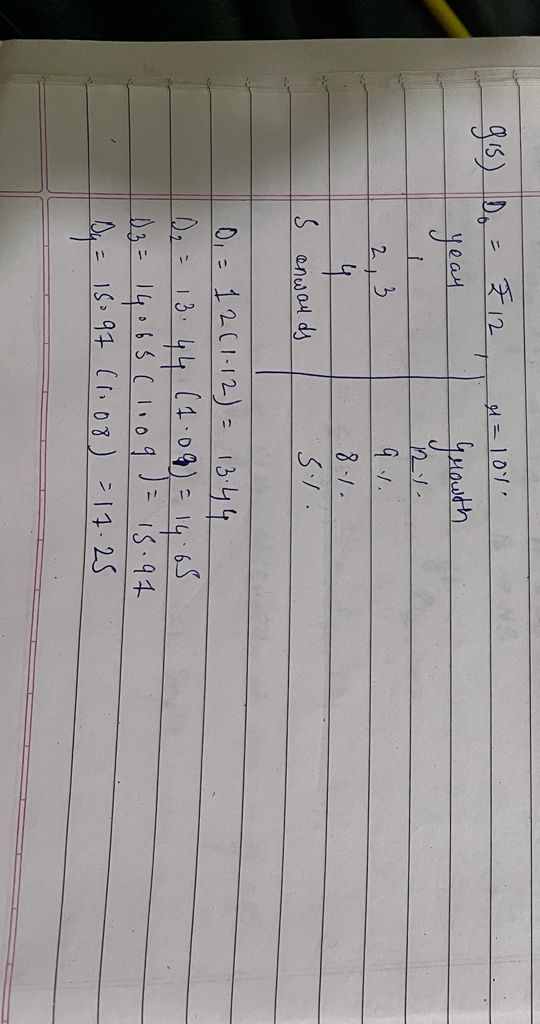 Q15) D₀ = ₹12, r = 10%.
year Growth
1 12%.
2,3 9%.
4 8%.
5 onwards 5%.
D₁ = 12(1.12) = 13.44
D₂ = 13.44 (1.09) = 14.65
D₃ = 14.65 (1.09) = 15.97
D₄ = 15.97 (1.08) = 17.25